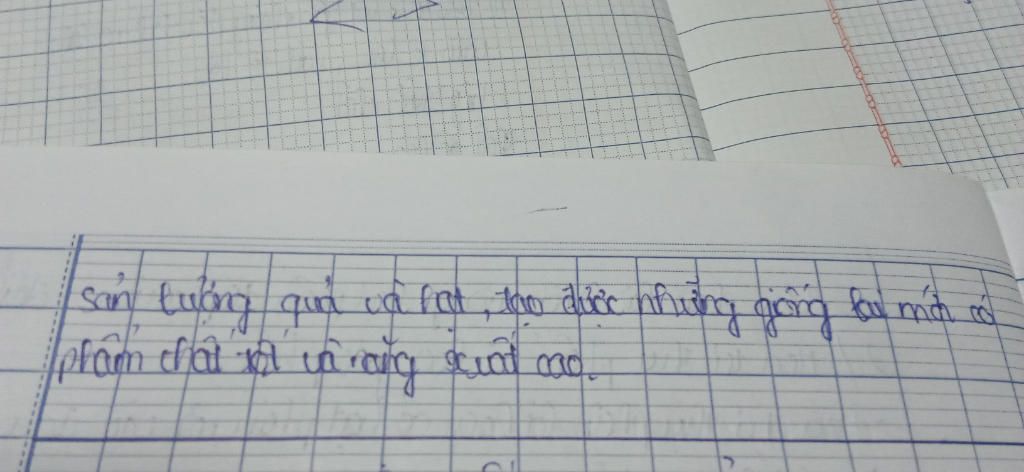 sản lượng quả và hạt, tạo được những giống lai mới có
phẩm chất tốt và năng suất cao.